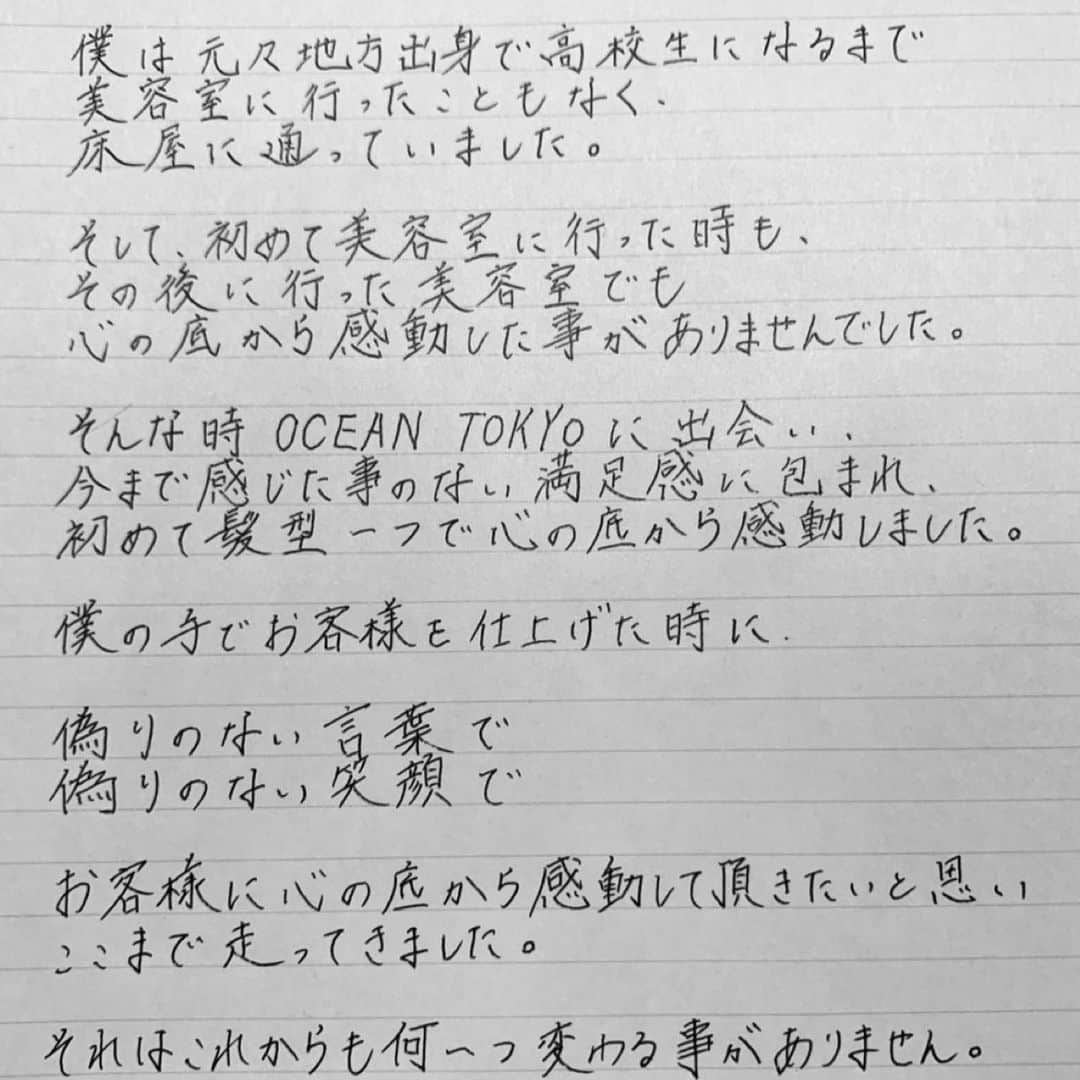 僕は元々地方出身で高校生になるまで
美容室に行ったこともなく、
床屋に通っていました。
そして、初めて美容室に行った時も、
その後に行った美容室でも
心の底から感動した事がありませんでした。
そんな時 OCEAN TOKYOに出会い、
今まで感じた事のない満足感に包まれ、
初めて髪型一つで心の底から感動しました。
僕の手でお客様を仕上げた時に、
偽りのない言葉で
偽りのない笑顔で
お客様に心の底から感動して頂きたいと思い
ここまで走ってきました。
それはこれからも何一つ変わる事がありません。